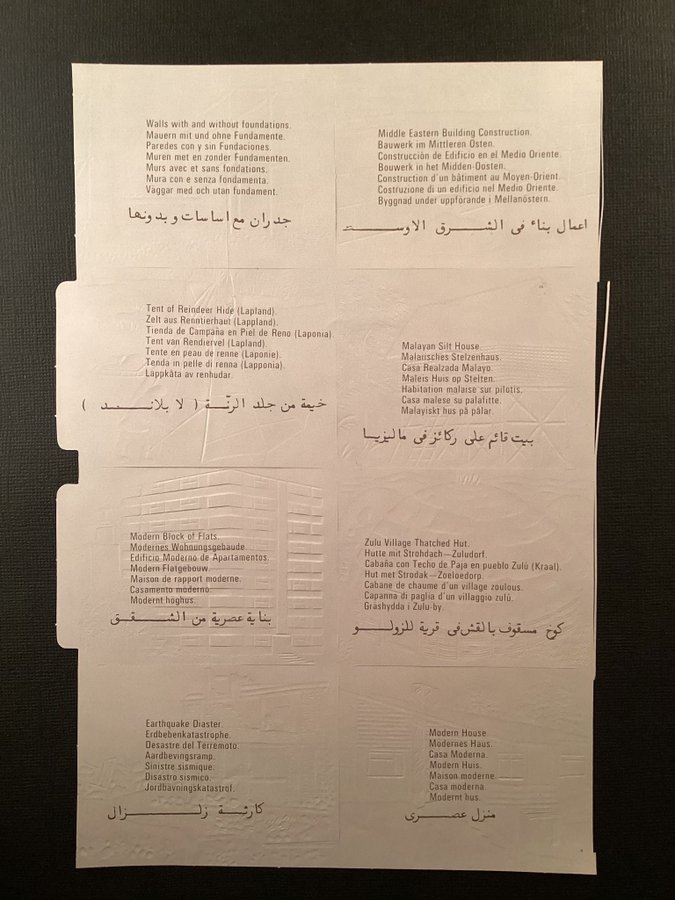 Walls with and without foundations.
Mauern mit und ohne Fundamente.
Paredes con y sin Fundaciones.
Muren met en zonder Fundamenten.
Murs avec et sans fondations.
Mura con e senza fondamenta.
Väggar med och utan fundament.
جدران مع اساسات و بدونها
Middle Eastern Building Construction.
Bauwerk im Mittleren Osten.
Construcción de Edificio en el Medio Oriente.
Bouwerk in het Midden-Oosten.
Construction d'un bâtiment au Moyen-Orient.
Costruzione di un edificio nel Medio Oriente.
Byggnad under uppförande i Mellanöstern.
اعمال بناء في الشرق الاوسط
Tent of Reindeer Hide (Lapland).
Zelt aus Renntierhaut (Lappland).
Tienda de Campaña en Piel de Reno (Laponia).
Tent van Rendiervel (Lapland).
Tente en peau de renne (Laponie).
Tenda in pelle di renna (Lapponia).
Lappkåta av renhudar.
خيمة من جلد الرنّة ( لا بلاند )
Malayan Silt House.
Malaiisches Stelzenhaus.
Casa Realzada Malayo.
Maleis Huis op Stelten.
Habitation malaise sur pilotis.
Casa malese su palafitte.
Malayiskt hus på pålar.
بيت قائم على ركائز في ماليزيا
Modern Block of Flats.
Modernes Wohnungsgebaude.
Edificio Moderno de Apartamentos.
Modern Flatgebouw.
Maison de rapport moderne.
Casamento moderno.
Modernt höghus.
بناية عصرية من الشقق
Zulu Village Thatched Hut.
Hutte mit Strohdach—Zuludorf.
Cabaña con Techo de Paja en pueblo Zulú (Kraal).
Hut met Strodak—Zoeloedorp.
Cabane de chaume d'un village zoulous.
Capanna di paglia d'un villaggio zulú.
Gräshydda i Zulu-by.
كوخ مسقوف بالقش في قرية للزولو
Earthquake Diaster.
Erdbebenkatastrophe.
Desastre del Terremoto.
Aardbevingsramp.
Sinistre sismique.
Disastro sismico.
Jordbävningskatastrof.
كارثة زلزال
Modern House.
Modernes Haus.
Casa Moderna.
Modern Huis.
Maison moderne.
Casa moderna.
Modernt hus.
منزل عصرى